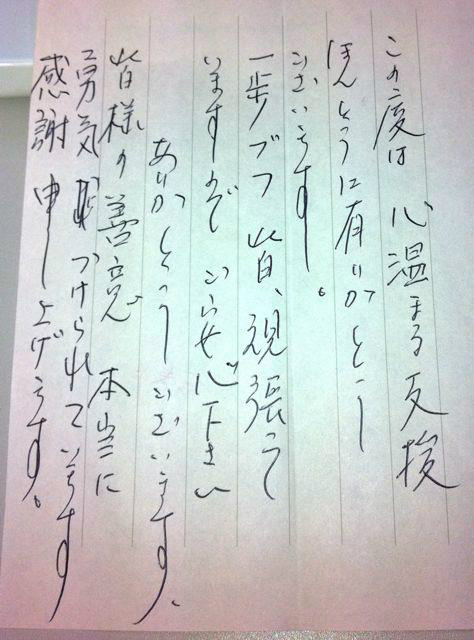 この度は 心温まる 支援
ほんとうに有りがとう
ございます。
一歩ヅツ 皆、頑張って
いますので ご安心下さい
ありがとうございます、
皆様の善意 本当に
勇気づけられています
感謝申し上げます。